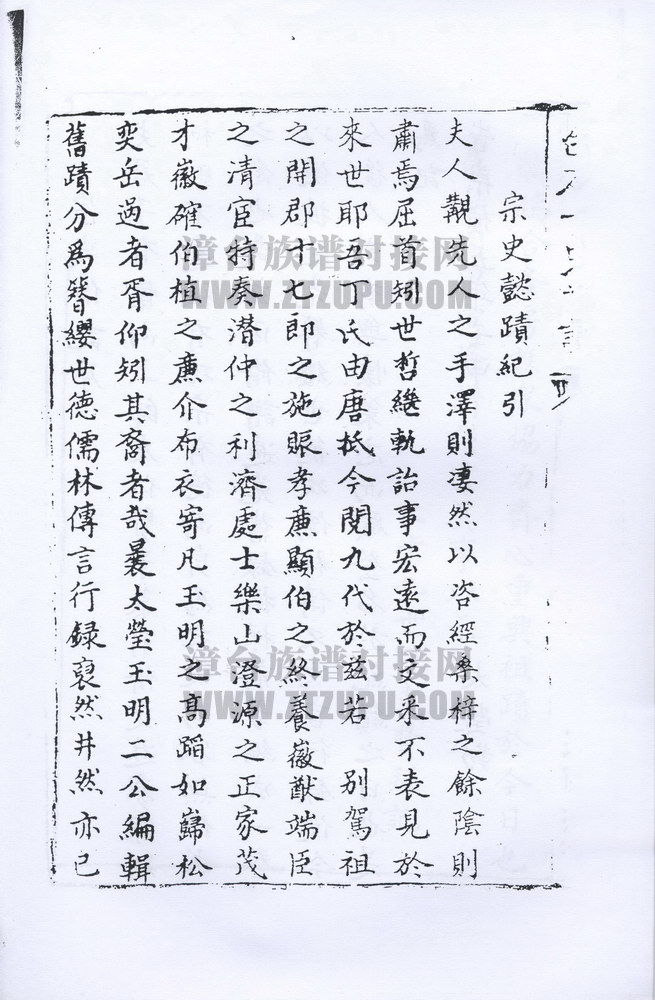 宗史懿蹟紀引
夫人覩先人之手澤則凄然以咨經桑梓之餘陰則
肅焉屈首矧世哲繼軌詒事宏遠而文采不表見於
來世耶吾丁氏由唐抵今閱九代於兹若 別駕祖
之開郡十七郎之施賑孝亷顯伯之終養嶶猷端臣
之清宦持奏潛仲之利濟處士樂山澄源之正家茂
才徽確伯植之亷介布衣寄凡玉明之髙蹈如巋松
奕岳過者胥仰矧其裔者哉曩太瑩玉明二公編輯
舊蹟分爲簪纓世德儒林傳言行録裒然井然亦已
漳台族谱对接网
WWW.ZTZUPU.COM
漳台族谱对接网
WWW.ZTZUPU.COM